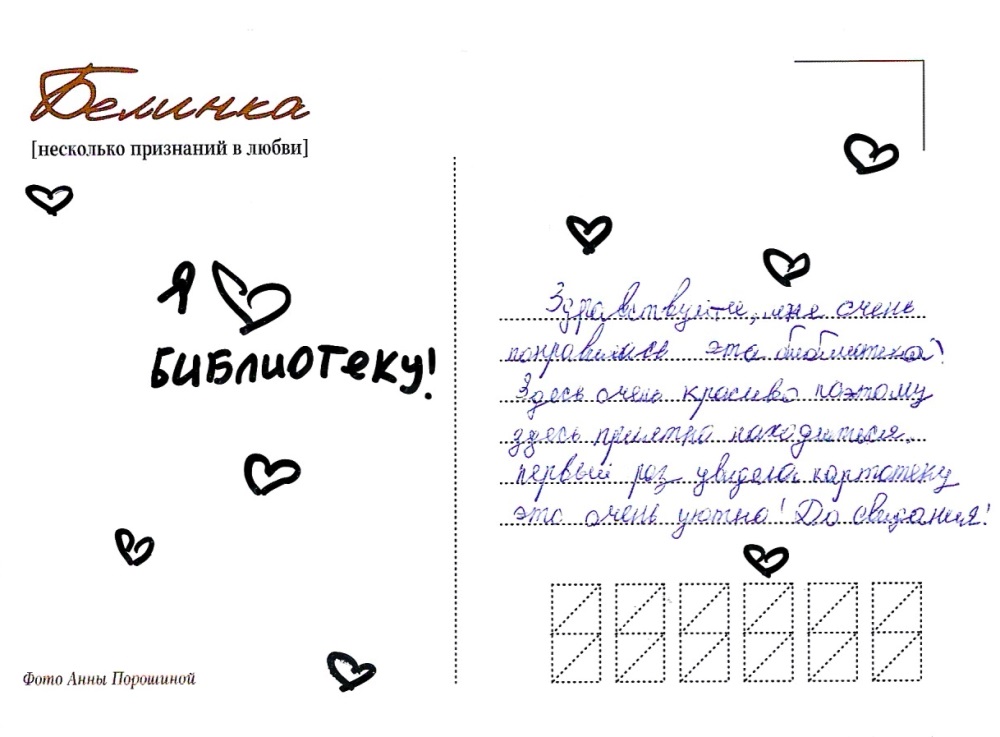 Белинка
[несколько признаний в любви]
Я
БИБЛИОТЕКУ!
Фото Анны Порошиной
Здравствуйте, мне очень
понравилась эта библиотека!
Здесь очень красиво поэтому
здесь приятно находиться.
первый раз увидела картотеку
это очень уютно! До свидания!